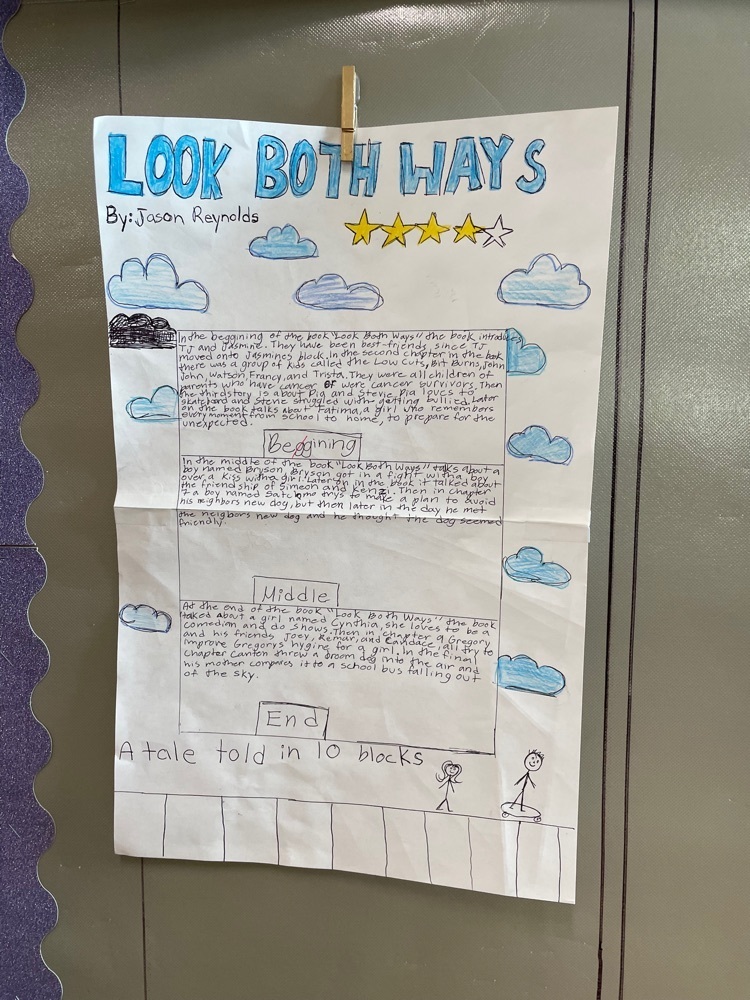 LOOK BOTH WAYS
By: Jason Reynolds
In the beggining of the book "Look Both Ways" the book introduces
TJ and Jasmine. They have been best-friends since TJ
moved onto Jasmines block. In the second chapter in the book
there was a group of kids called the Low Cuts, Bit Burns, John
John, Watson, Francy, and Trista. They were all children of
parents who have cancer or were cancer survivors. Then
the third story is about Pia and Stevie. Pia loves to
skateboard and Stevie struggled with getting bullied. Later
on the book talks about Fatima, a girl who remembers
every moment from school to home, to prepare for the
unexpected.
Beggining
In the middle of the book "Look Both Ways" talks about a
boy named Bryson. Bryson got in a fight with a boy
over a kiss with a girl. Later on in the book it talked about
the friendship of Simeon and Kenzi. Then in chapter
7 a boy named Satchmo trys to make a plan to avoid
his neighbors new dog, but then later in the day he met
the neighbors new dog and he thought the dog seemed
friendly.
Middle
At the end of the book "Look Both Ways" the book
talked about a girl named Cynthia, she loves to be a
comedian and do shows. Then in chapter 9 Gregory
and his friends Joey, Remar, and Candace, all try to
improve Gregorys hygine for a girl. In the final
chapter Canton threw a broom dog into the air and
his mother compares it to a school bus falling out
of the sky.
End
A tale told in 10 blocks